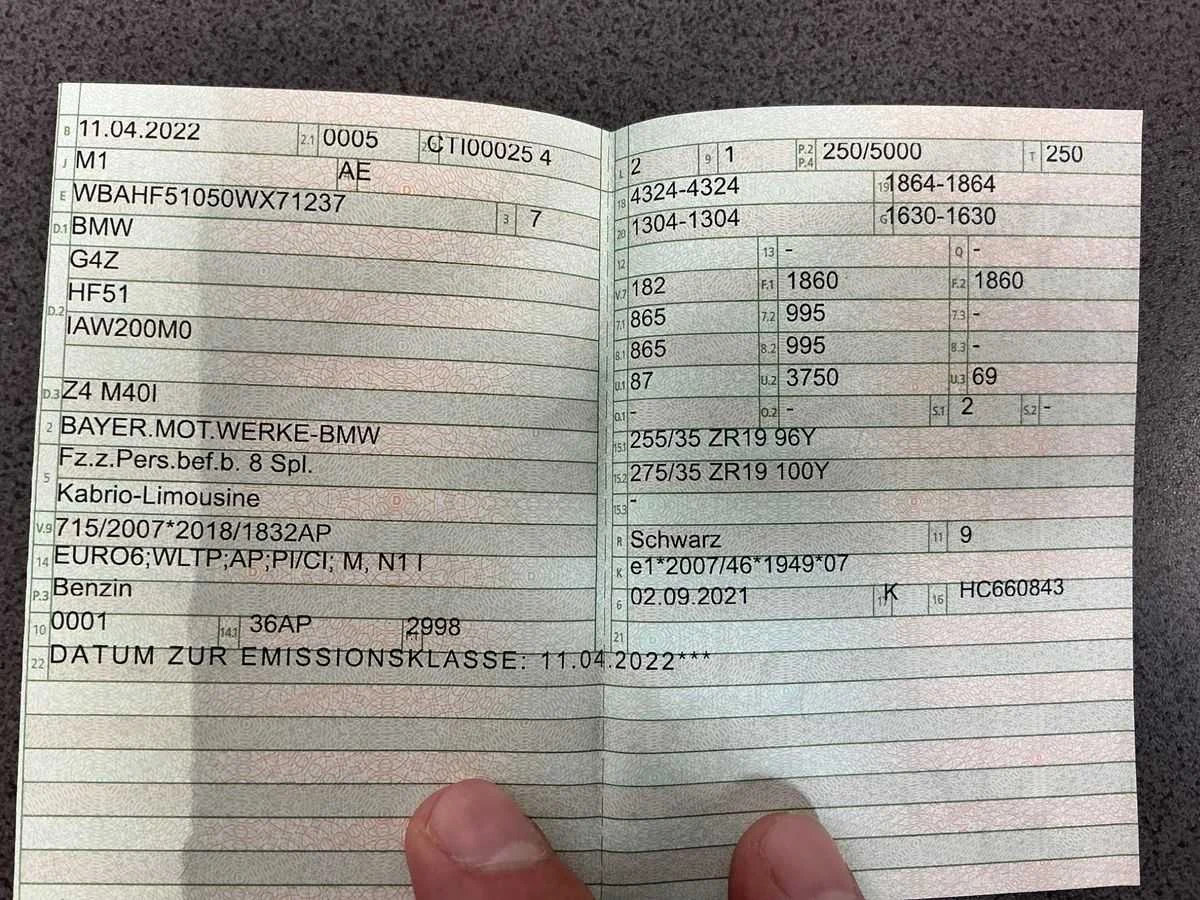 B 11.04.2022 2.1 0005 2.2 CTI00025 4
J M1 AE
E WBAHF51050WX71237 3 7
D.1 BMW
G4Z
D.2 HF51
IAW200M0
D.3 Z4 M40I
2 BAYER.MOT.WERKE-BMW
5 Fz.z.Pers.bef.b. 8 Spl.
Kabrio-Limousine
V.9 715/2007*2018/1832AP
14 EURO6;WLTP;AP;PI/CI; M, N1 I
P.3 Benzin
10 0001 14.1 36AP P.1 2998
22 DATUM ZUR EMISSIONSKLASSE: 11.04.2022***
L 2 9 1 P.2 P.4 250/5000 T 250
18 4324-4324 19 1864-1864
20 1304-1304 G 1630-1630
12 13 - Q -
V.7 182 F.1 1860 F.2 1860
7.1 865 7.2 995 7.3 -
8.1 865 8.2 995 8.3 -
U.1 87 U.2 3750 U.3 69
O.1 - O.2 - S.1 2 S.2 -
15.1 255/35 ZR19 96Y
15.2 275/35 ZR19 100Y
15.3 -
R Schwarz 11 9
K e1*2007/46*1949*07
6 02.09.2021 17 K 16 HC660843
21